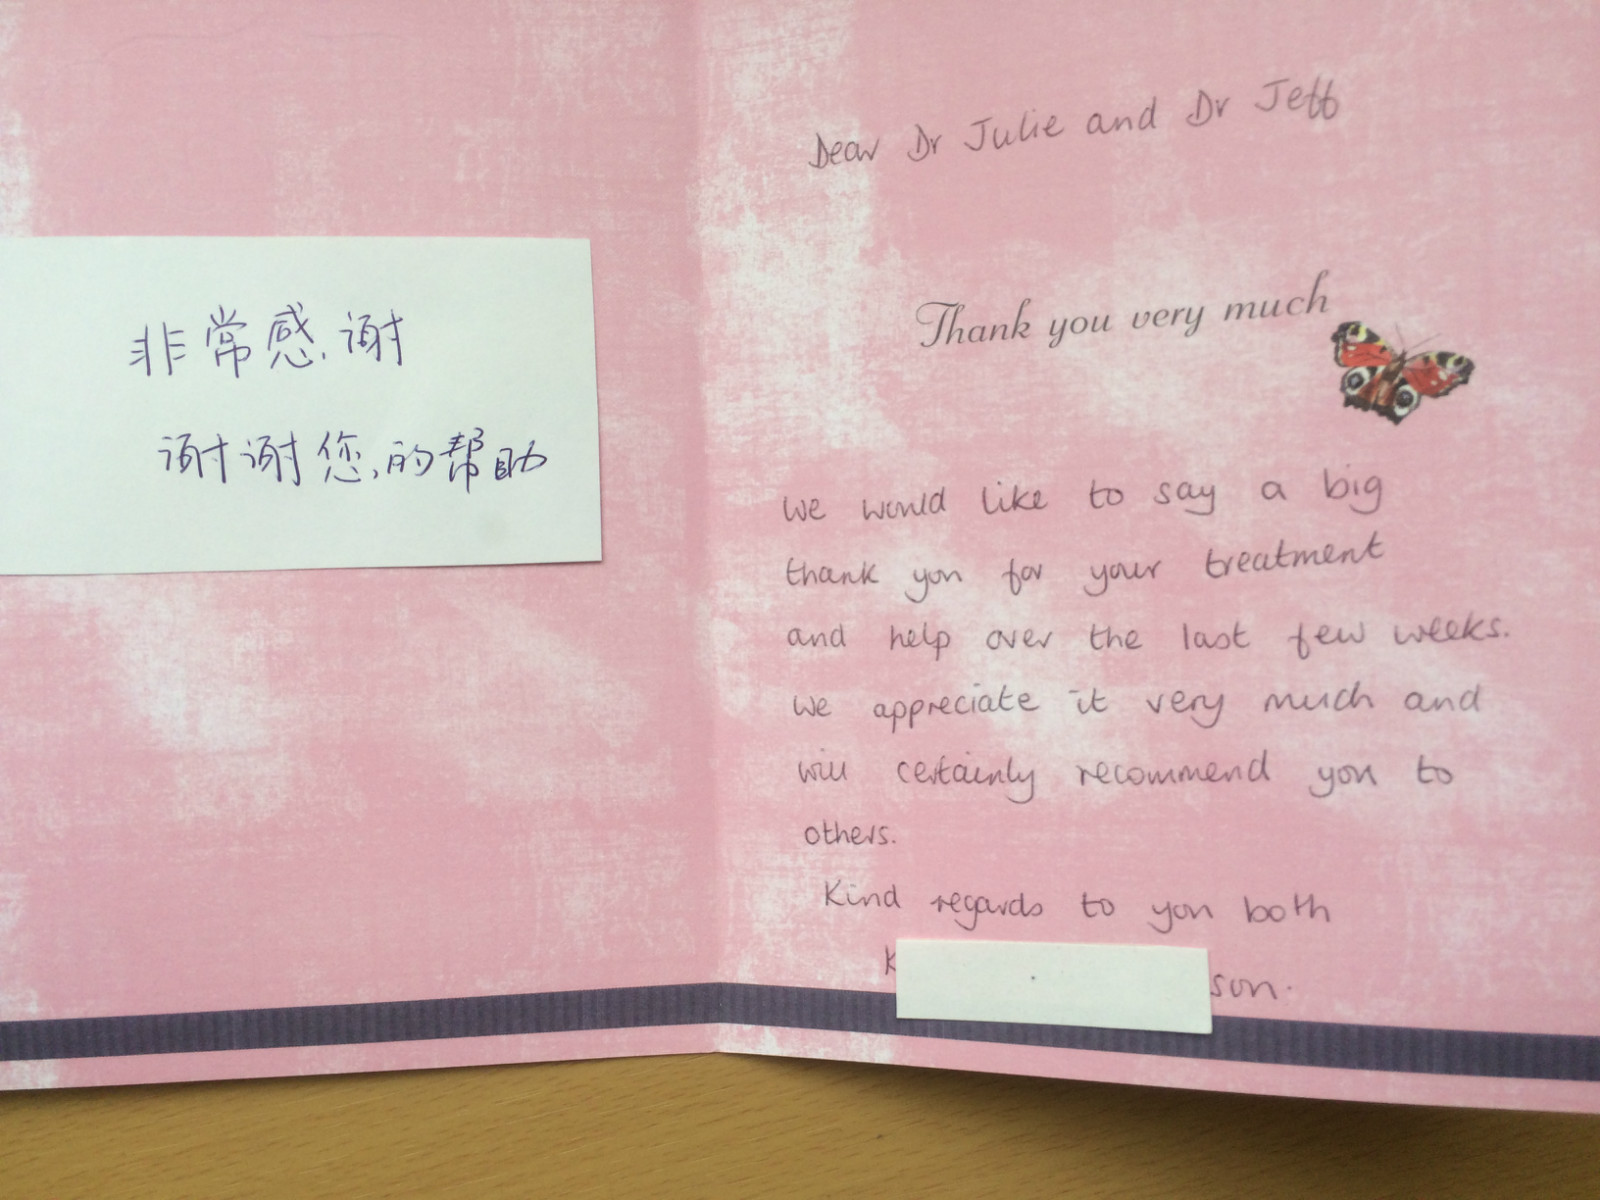 非常感谢
谢谢您的帮助
Dear Dr Julie and Dr Jeff
Thank you very much
We would like to say a big
thank you for your treatment
and help over the last few weeks.
We appreciate it very much and
will certainly recommend you to
others.
Kind regards to you both
K
son.